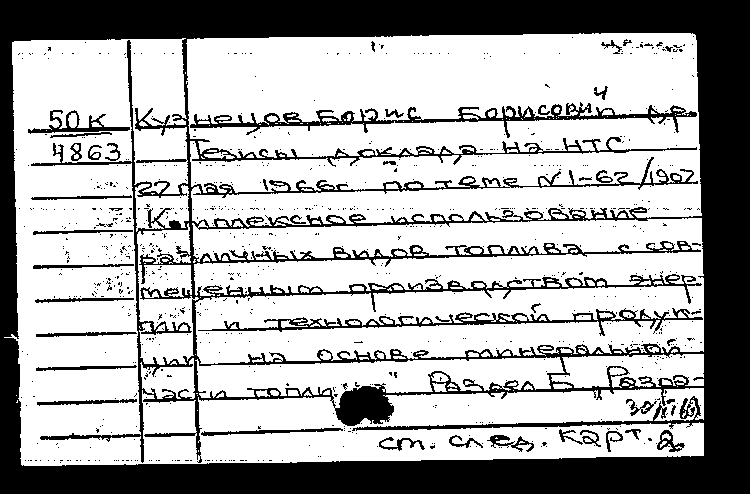 50к Кузнецов, Борис Борисович и др.
4863 Тезисы доклада на НТС
27 мая 1966г по теме №1-62/1907
Комплексное использование
различных видов топлива с сов-
мещенным производством энер-
гии и технологической продук-
ции на основе минеральной
части топли " Раздел Б „Разра-
см. след. карт. 2